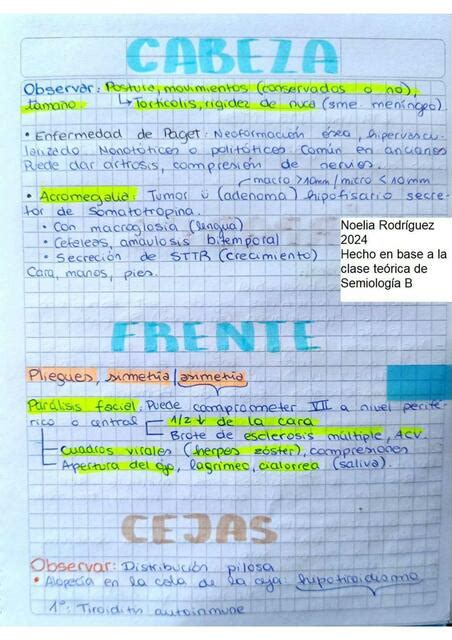 CABEZA
Observar: Postura, movimientos (conservados o no),
tamaño ↳ Torticolis, rigidez de nuca (sme. meníngeo)
• Enfermedad de Paget: Neoformación ósea, hipervascu-
larizado. Monotóticos o politóticos. Común en ancianos
Puede dar artrosis, compresión de nervios.
macro >10mm / micro <10mm
• Acromegalia: Tumor ü (adenoma) hipofisario secre-
tor de somatotropina.
• Con macroglosia (lengua)
• Cefeleas, amaulosis bitemporal
• Secreción de STTR (crecimiento)
Cara, manos, pies.
Noelia Rodríguez
2024
Hecho en base a la
clase teórica de
Semiología B
FRENTE
Pliegues, simetría / asimetría
Parálisis facial: Puede comprometer VII a nivel perifé-
rico o central 1/2 ↓ de la cara
Brote de esclerosis múltiple, ACV.
Cuadros virales (herpes zóster), compresiones
Apertura del ojo, lagrimeo, sialorrea (saliva).
CEJAS
Observar: Distribución pilosa
• Alopecia en la cola de la ceja: hipotiroidismo
1°: Tiroiditis autoinmune